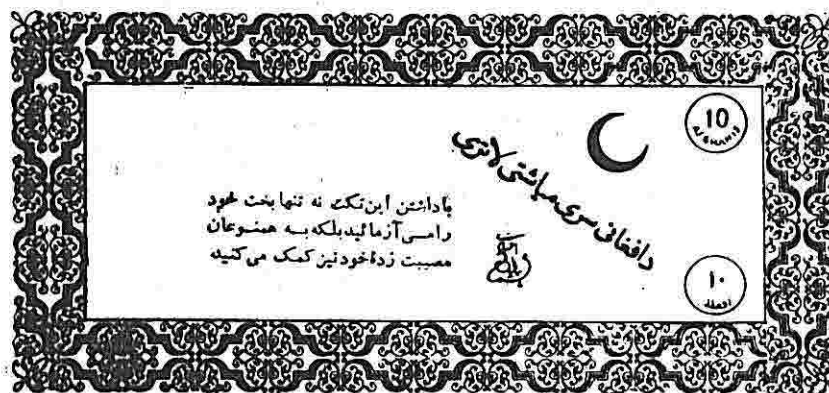 10
AFGHANIS
دافغانی سری میاشتی لاتری
باداشتن این تکت نه تنها بخت خود
رامی آزمائید بلکه به همنوعان
مصیبت زدۀ خود نیز کمک می کنید
۱۰